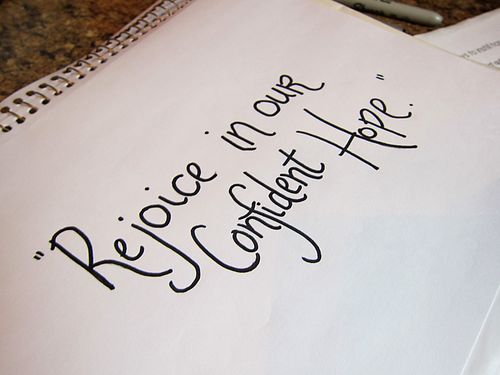 "Rejoice in our
Confident Hope."